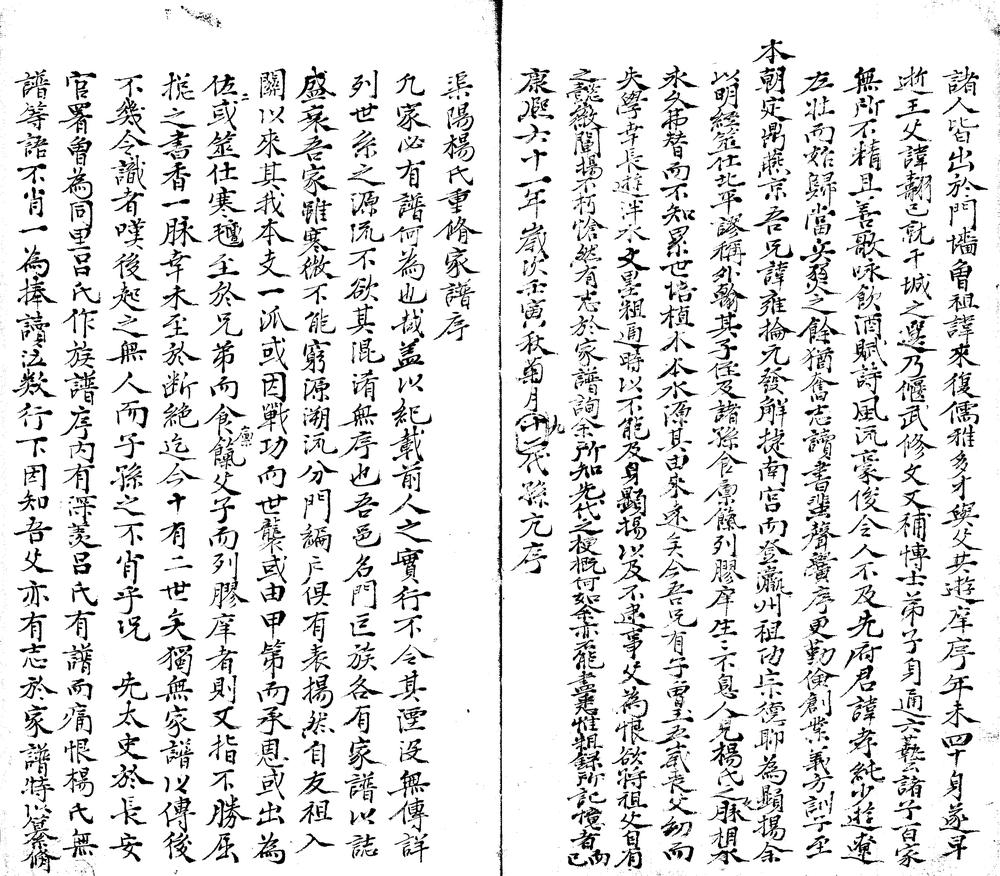 諸人皆出於門墻魯祖諱來復儒雅多才與父共遊庠序年未四十身遂早
逝王父諱翮已就干城之選乃偃武修文又補博士弟子身通六藝諸子百家
無所不精且善歌咏飲酒賦詩風流豪俊令人不及先府君諱孝純少遊遼
左壯而始歸當兵燹之餘猶奮志讀書蜚聲黌序更勤儉創業義方訓子至
本朝定鼎燕京吾兄諱雍掄元發解捷南宮而登瀛州祖功宗德聊為顯揚余
以明經筮仕北平謬稱外翰其子侄及諸孫食廩餼列膠庠生生不息人見楊氏之脉相承
永久弗替而不知累世培植木本水源其由來遠矣今吾兄有子曹玉五歲喪父幼而
失學幸長遊泮水文墨粗通時以不能及身顯揚以及不逮事父為恨欲將祖父自有
之懿徽闡揚不朽愴然有志於家譜詢余所知先代之梗概何如余亦不能盡悉惟粗錄所記憶者而已
康熙六十一年歲次壬寅秋菊月九代孫亢序
渠陽楊氏重脩家譜序
凡家必有譜何為也哉蓋以紀載前人之實行不令其湮沒無傳詳
列世系之源流不欲其混淆無序也吾邑名門巨族各有家譜以誌
盛衰吾家雖寒微不能窮源溯流分門編戶俱有表揚然自友祖入
關以來其我本支一派或因戰功而世襲或由甲第而承恩或出為
仕或筮仕寒氊至於兄弟而食廩餼父子而列膠庠者則又指不勝屈
揔之書香一脉幸未至於断絕迄今十有二世矣獨無家譜以傳後
不幾令識者嘆後起之無人而子孫之不肖乎况　先太史於長安
官署曾為同里呂氏作族譜序內有深羡呂氏有譜而痛恨楊氏無
譜等語不肖一為捧讀泣数行下因知吾父亦有志於家譜特以纂脩